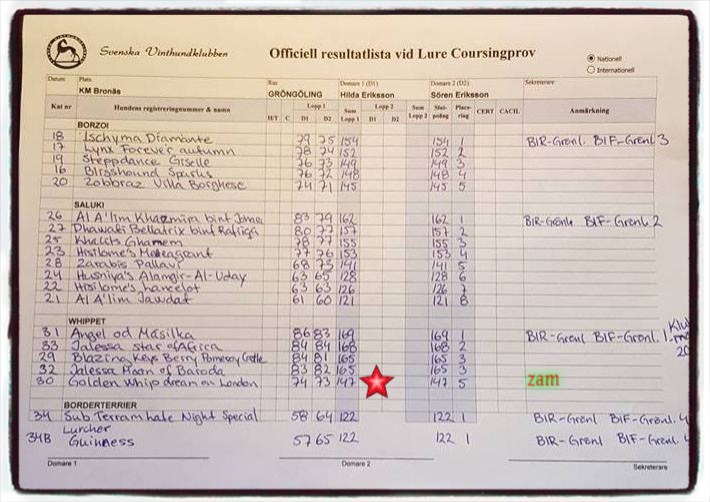 Svenska Vinthundklubben Officiell resultatlista vid Lure Coursingprov
Nationell
Internationell
Datum: Plats: Ras: Domare 1 (D1) Domare 2 (D2) Sekreterare
KM Bronäs GRÖNGÖLING Hilda Eriksson Sören Eriksson
Kat nr Hundens registreringnummer & namn H/T C Lopp 1 D1 D2 Sum Lopp 1 Lopp 2 D1 D2 Sum Lopp 2 Slut-poäng Place-ring CERT CACIL Anmärkning
BORZOI
18 Ischyma Diamante 79 75 154 154 1 BIR-Grönl. BIF-Grönl 3
17 Lynx Forever autumn 78 74 152 152 2
19 Steppdance Giselle 76 73 149 149 3
16 Sparks 76 72 148 148 4
20 Zobbraz Villa Borghese 74 71 145 145 5
SALUKI
26 Al A'lim Khazmira bint 83 79 162 162 1 BIR-Grönl BIF-Grönl 2
27 Dhawati Bellatrix bint Rafiqa 80 77 157 157 2
25 Khalits Ghamem 78 77 155 155 3
23 Hisilome's 77 76 153 153 4
28 Zarabis Pallavi 68 73 141 141 5
24 Husniya's Alamgir-Al-Uday 63 65 128 128 6
22 Hisilome's Lancelot 63 63 126 126 7
21 Al A'lim Jawdat 61 60 121 121 8
WHIPPET
31 Angel od Másilka 86 83 169 169 1 BIR-Grönl BIF-Grönl. 1
33 Jalessa Star of Africa 84 84 168 168 2
29 Blazing Keys Berry Pomeroy Castle 84 81 165 165 3
32 Jalessa Moon of Baroda 83 82 165 165 3
30 Golden Whip dream en London 74 73 147 147 5 zam
BORDERTERRIER
34 Sub Terram hate Night Special 58 64 122 122 1 BIR-Grönl BIF-Grönl. 4
Lurcher
34B Guinness 57 65 122 122 1 BIR-Grönl BIF-Grönl. 4
Domare 1 Domare 2 Sekreterare